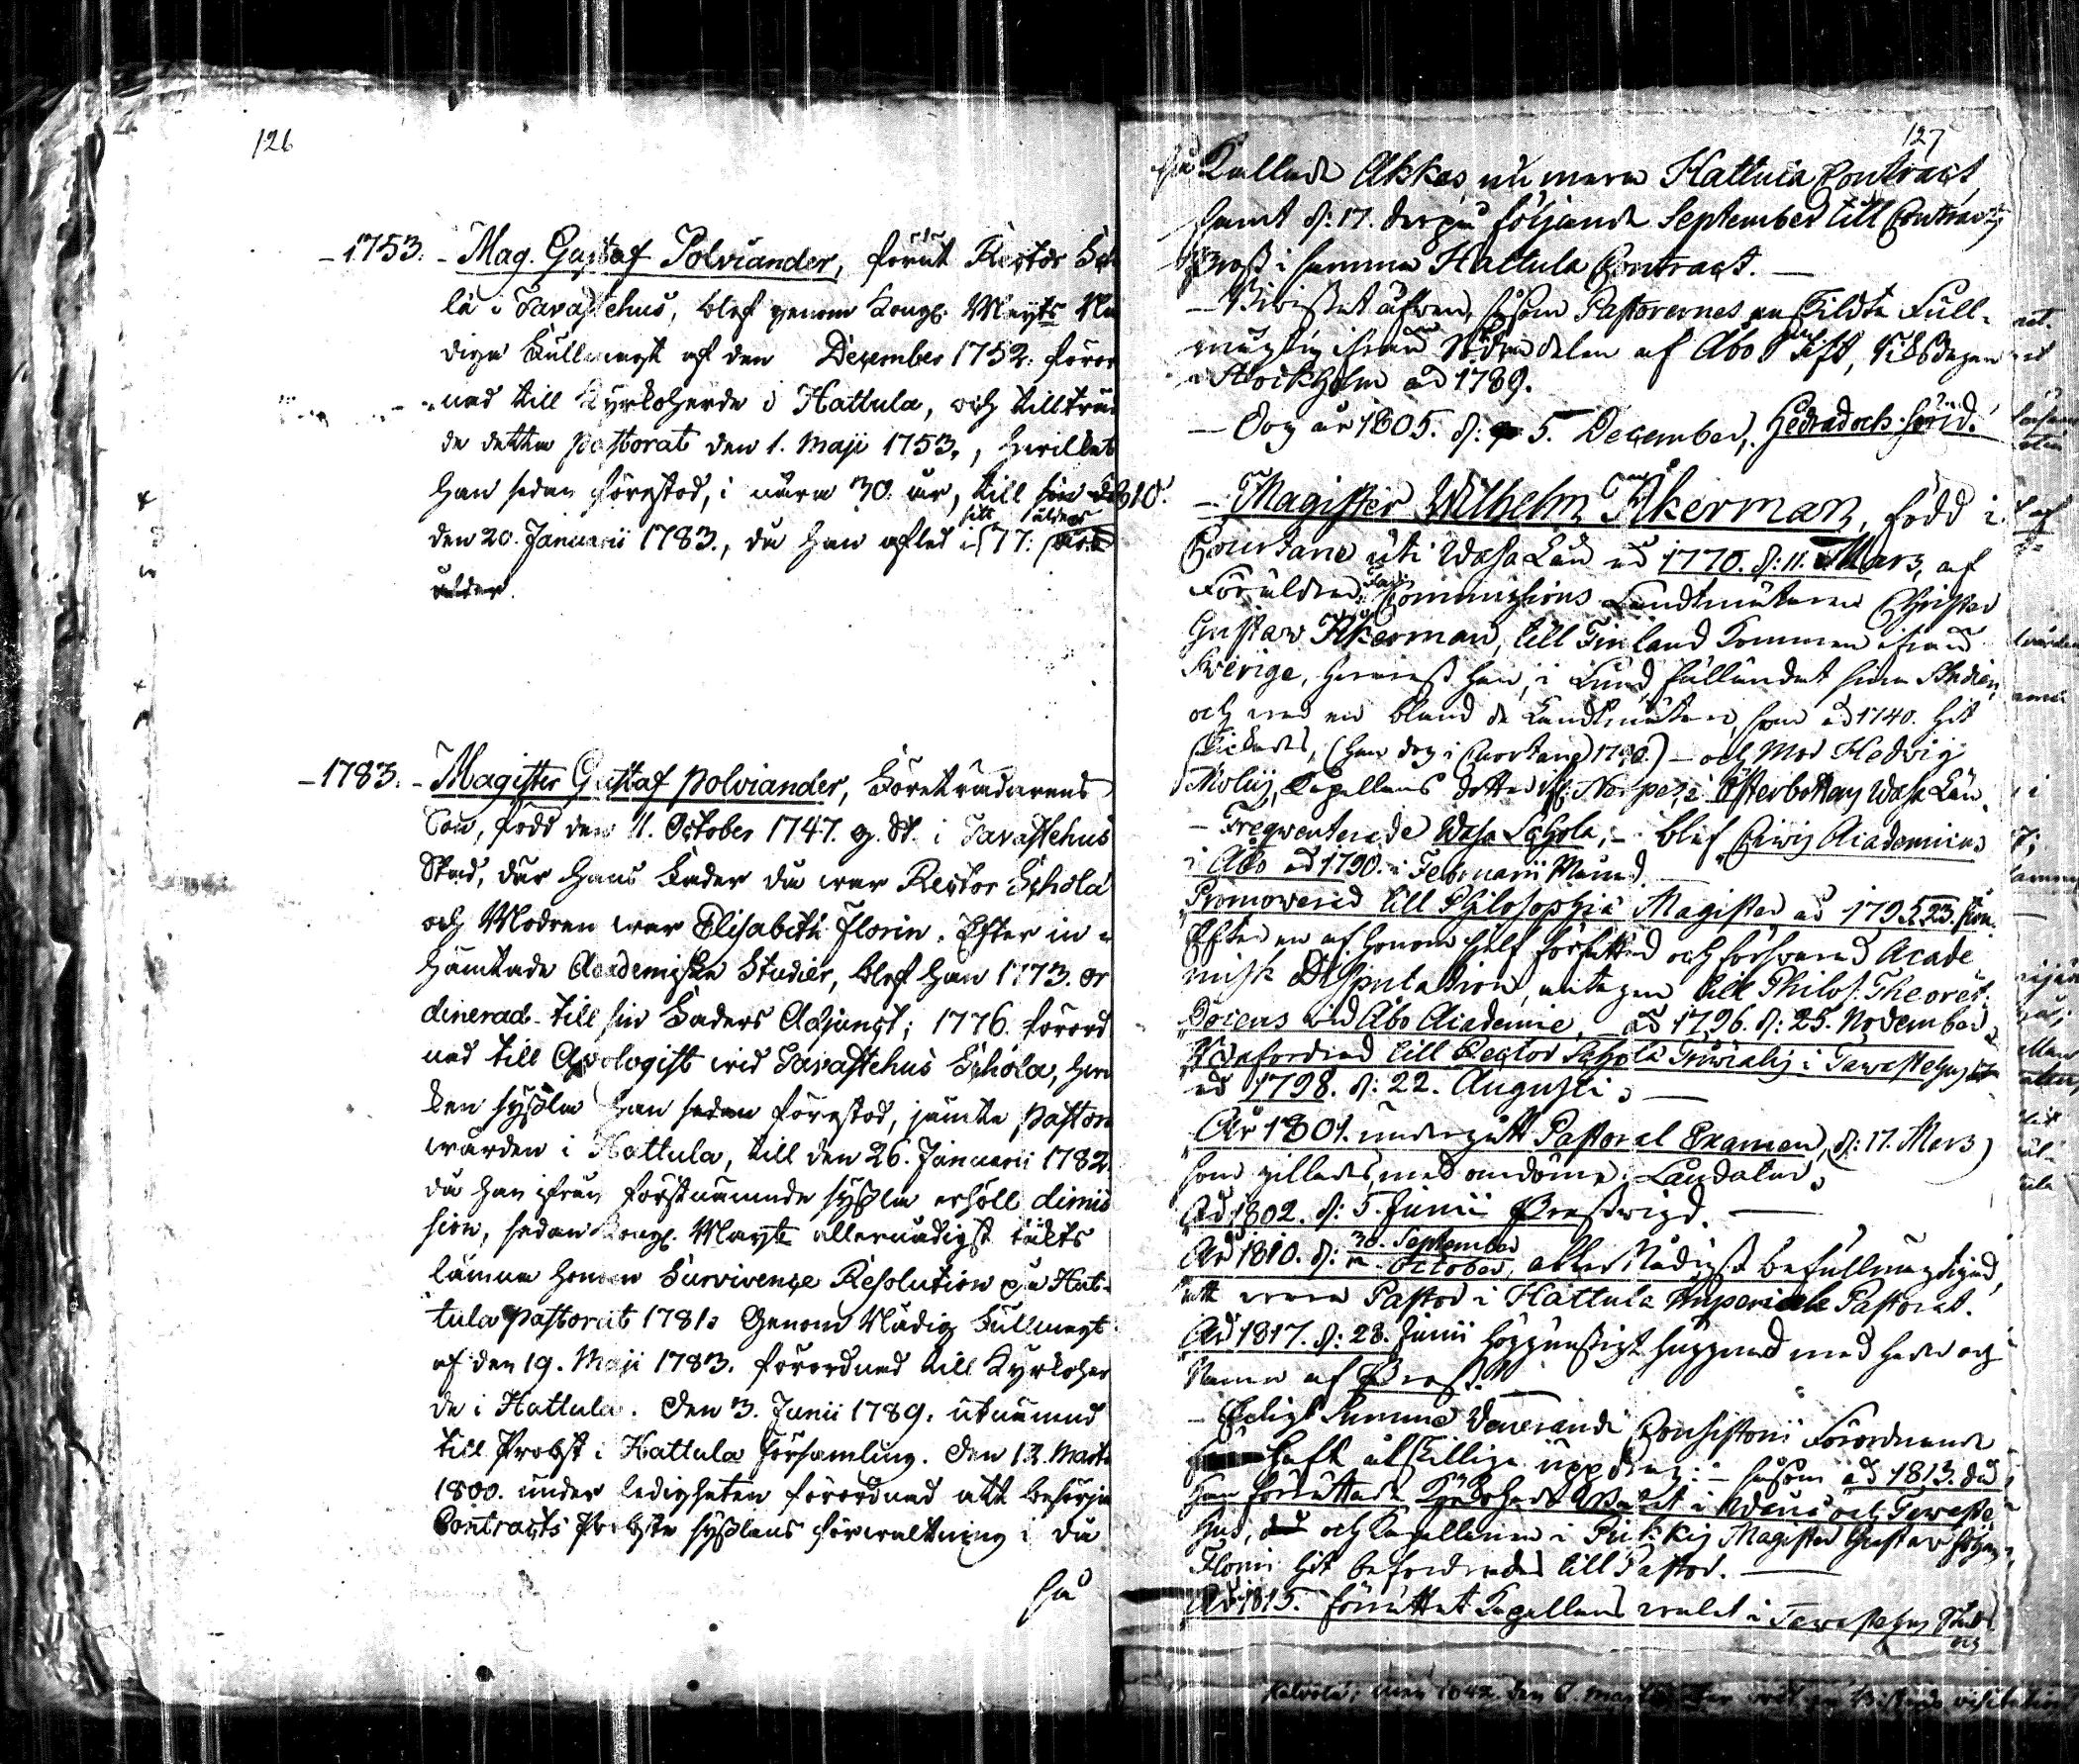 126
-1753. - Mag. Gustaf Polviander, förut Rector Scho
læ i Tavastehus, blef genom Kongl. Mayts Nå
diga Fullmagt af den December 1752. föror
nad till Kyrkoherde i Hattula, och tillträd
de detta pastorat den 1. Maji 1753., hvilket
han sedan förestod, i nära 30. år, till sin död
den 20. Januarii 1783., då han afled i sitt 77: ålders
ålder.
-1783. - Magister Gustaf Polviander, Företrädarens
Son, född den 11. October 1747. g. St. i Tavastehus
Stad, där Hans Fader då war Rector Scholæ
och Modren war Elisabeth Florin. Efter in-
hämtade Academiska Studier, blef han 1773. or
dinerad till sin Faders Adjunct; 1776. förord
nad till Apologist wid Tavastehus Schola, hvil
ken syssla han sedan förestod, jämte pastors
wården i Hattula, till den 26. Januarii 1782.
då han ifrån förstnämnde syssla erhöll dimis
sion, sedan Kongl. Mayt allernådigst täckts
lämna honom Survivence Resolution på Hat-
tula pastorat 1781. Genom Nådig Fullmagt
af den 19. Maji 1783. förordnad till Kyrkoher
de i Hattula. Den 3. Junii 1789. utnämnd
till Probst i Hattula församling. Den 12. Martii
1800. under ledigheten förordnad att besörja
Contracts Probste sysslans förwaltning i då
så
127
så Kallade Akkas, nu mera Hattula Contract,
samt d: 17. derpå följande September till Contracts
Prost i samma Hattula Contract. —
- Bivistat äfwen, såsom Pastorernes Full-
mägtig ifrån Södra delen af Åbo Stift, Riksdagen
i Stockholm åd 1789.
- Dog år 1805. d: 5. December, Hedrad och Sörjd.
1810. - Magister Wilhelm Åkerman, född i
Cuortane uti Wasa Län åd 1770. d: 11. Mars, af
Föräldrar Commissions Landtmätaren Christer
Gustaw Åkerman, till Finland kommen ifrån
Swerige, hwarest han, i Lund fulländat sina Studier,
och war en bland de Landtmätare, som åd 1740. hit
skickades, (han dog i Cuortane) — och Mod. Hedvig
Molin, Kapellans dotter ifr. Närpes i Österbotten, Wasa Län.
- Freqwenterade Wasa Schola, - blef Civis Academicus
i Åbo åd 1790. i Februarii Månad.
Promowerad till Philosophiæ Magister åd 1795. 23. Jun.
Efter en af honom sjelf författad och försvarad Acade
misk Disputation, antagen till Philos. Theoret.
Docens wid Åbo Academie, - åd 1796. d: 25. November.
Befordrad till Rector Scholæ Trivialis i Tawastehus
åd 1798. d: 22. Augusti. —
År 1801. undergått Pastoral Examen, (d: 17. Mars)
som gillades med omdöme: Laudatur.
Åd 1802. d: 5. Junii Prestwigd. —
Åd 1810. d: 30. September October, aller Nådigst befullmägtigad
att wara Pastor i Hattula Imperiale Pastorat.
Åd 1817. d: 28. Junii höggunstigt hugnad med heder och
Namn af Prost. —
- Enligt Summe Venerandi Consistorii Förordnande
haft åtskillige uppdrag: - såsom åd 1813. då
han förrättade Kyrkoherde Walet i och Tawaste
hus, och Kapellanen i Piikkis Magister Gustav Johan
Florin hit befordrades till Pastor. —
Åd 1815. förrättat Kapellans walet i Tawastehus Stad
och